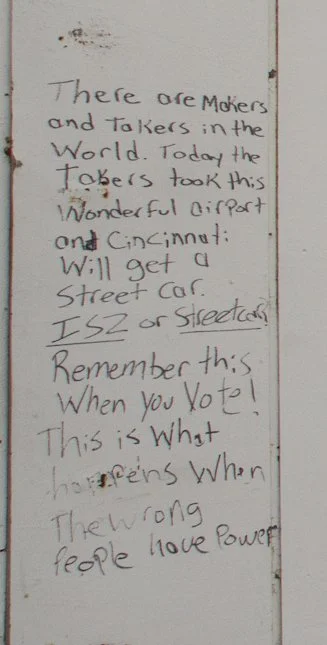 There are Makers
and Takers in the
World. Today the
Takers took this
Wonderful airport
and Cincinnati
Will get a
Street Car.
ISZ or Streetcars
Remember this
When you Vote!
This is What
happens When
The wrong
People have Power